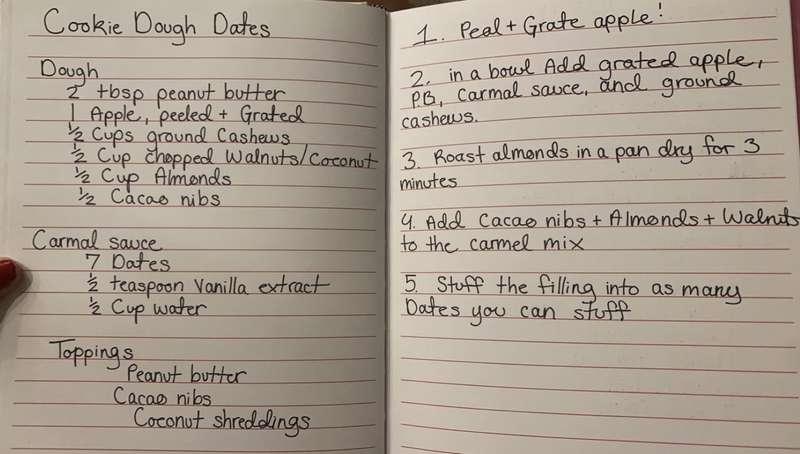 Cookie Dough Dates
Dough
2 tbsp peanut butter
1 Apple, peeled + Grated
½ Cups ground Cashews
½ Cup chopped Walnuts/Coconut
½ Cup Almonds
½ Cacao nibs
Carmal sauce
7 Dates
½ teaspoon Vanilla extract
½ Cup water
Toppings
Peanut butter
Cacao nibs
Coconut shreddings
1. Peal + Grate apple!
2. in a bowl Add grated apple,
PB, Carmal sauce, and ground
cashews.
3. Roast almonds in a pan dry for 3
minutes
4. Add Cacao nibs + Almonds + Walnuts
to the carmel mix
5. Stuff the filling into as many
Dates you can stuff